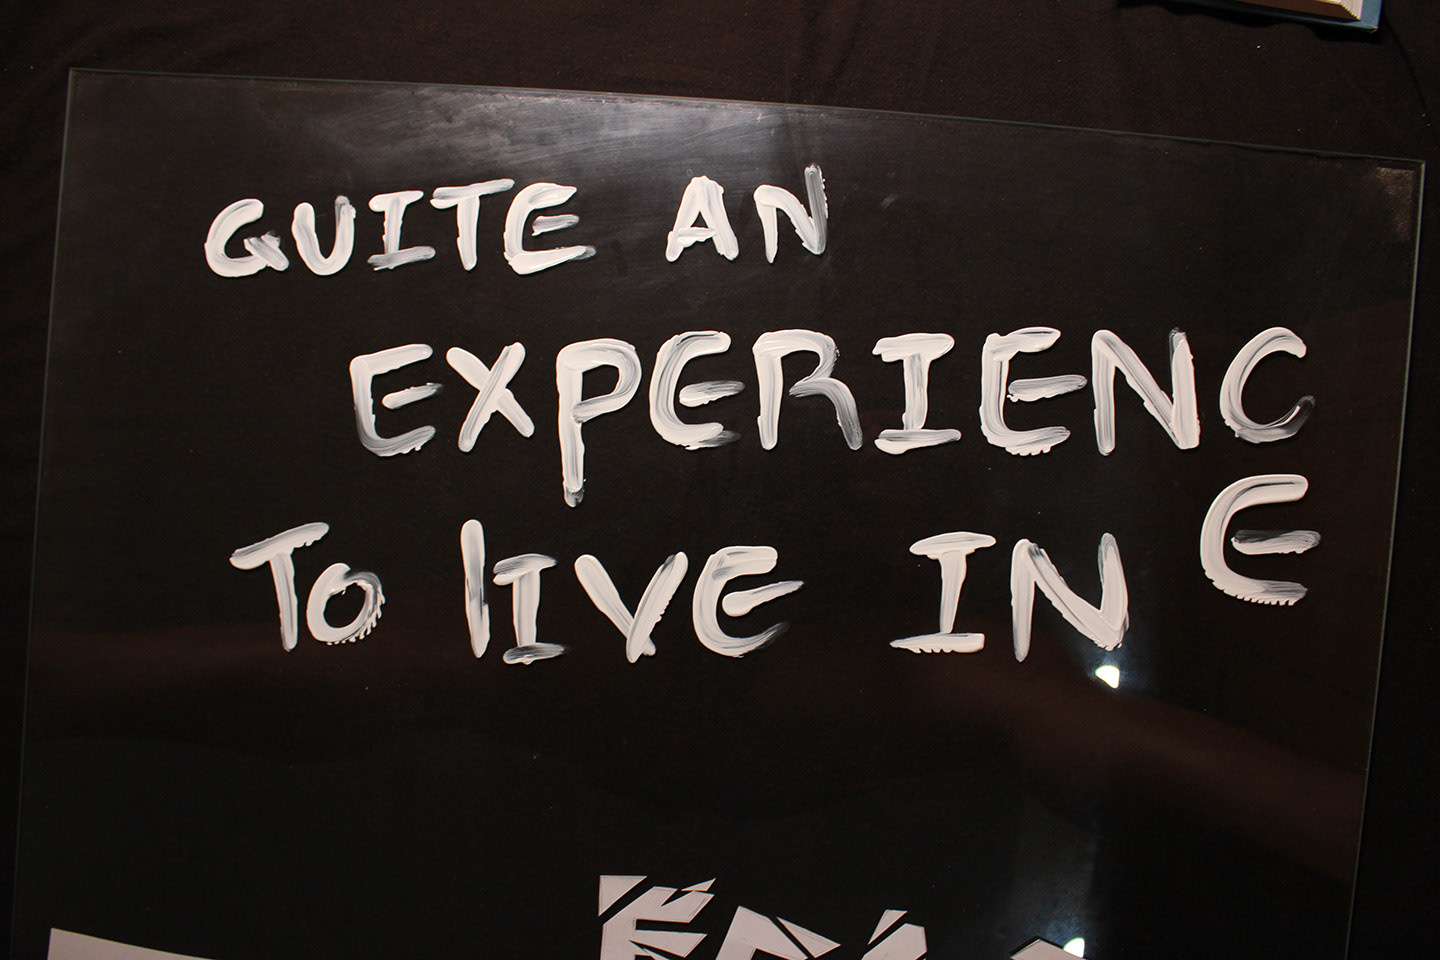 QUITE AN
EXPERIENCE
To lIVE IN